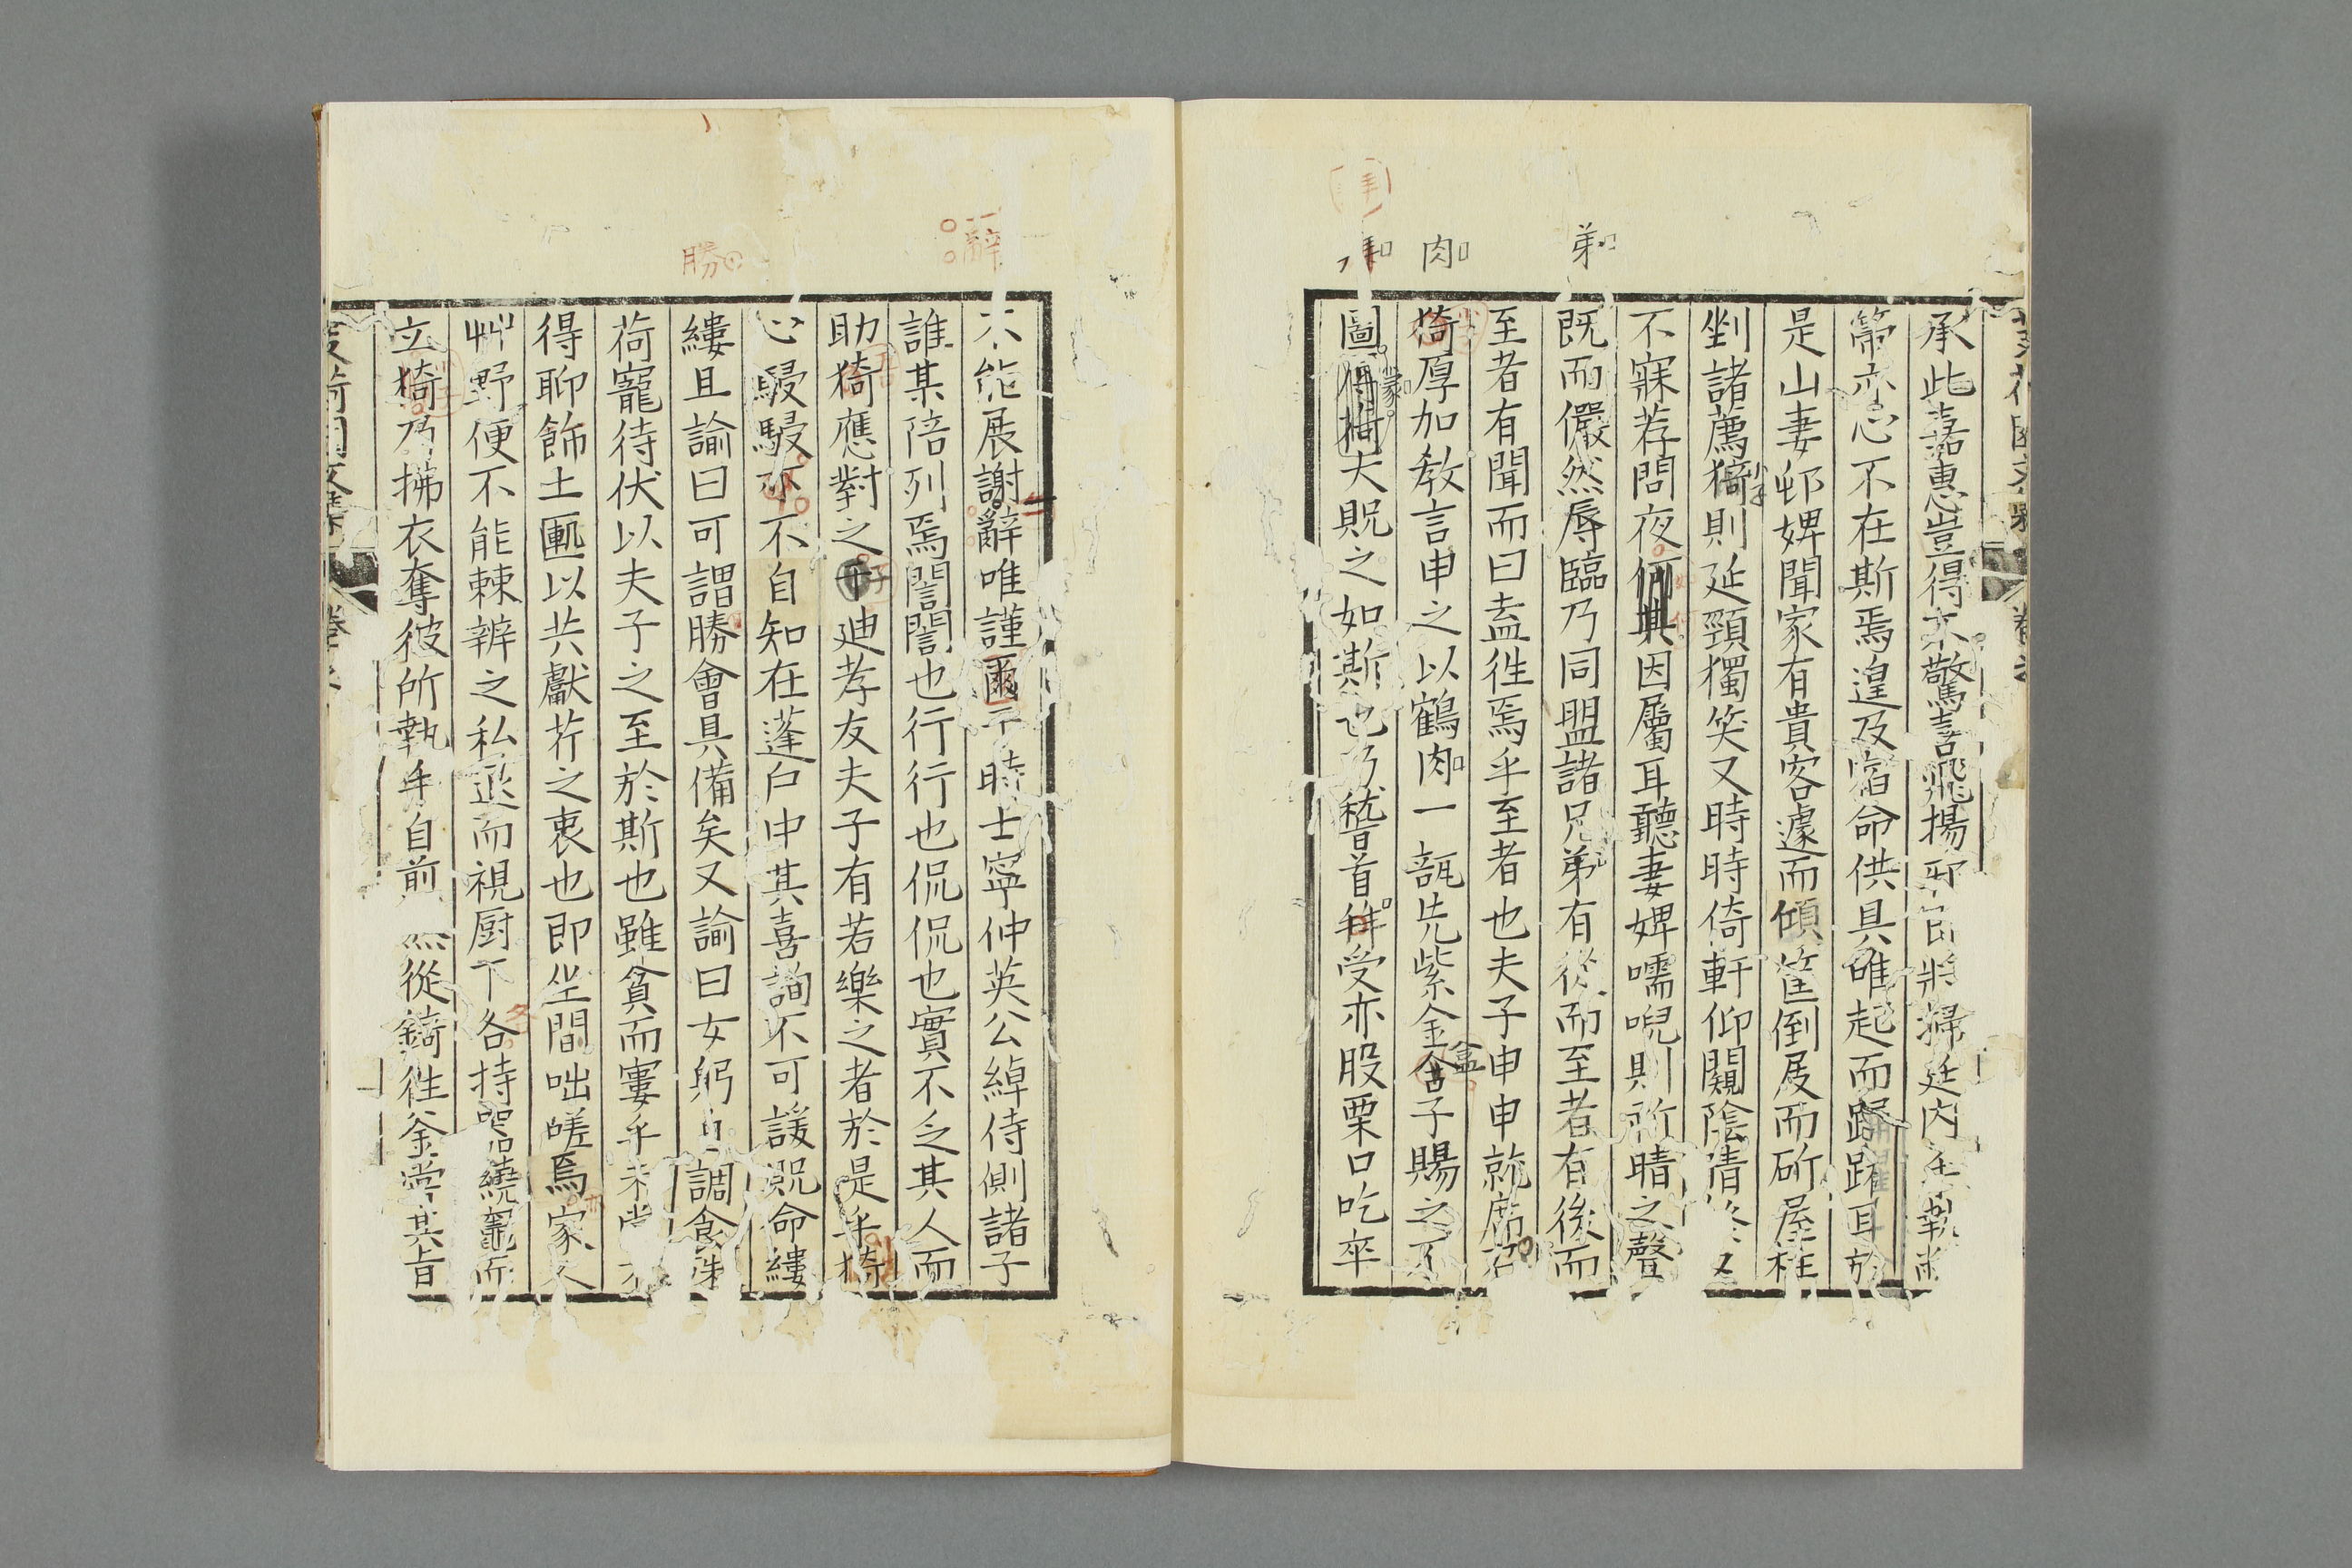 承此嘉惠豈得不驚喜飛揚即將掃廷內
箒亦心不在斯焉遑及宿命供具唯起而躍躍耳於
是山妻邨婢聞家有貴客遽而傾筐倒屐而斫屋柱
剉諸薦猗則延頸獨笑又時時倚軒仰闚陰倩
不寐荐問夜何其因屬耳聽妻婢嚅唲則祈晴之聲
既而儼然辱臨乃同盟諸兄弟有從而至者有後而
至者有聞而曰盍徃焉乎至者也夫子申申就席召
猗厚加教言申之以鶴肉一瓻先紫金盒子賜之不
圖夫貺之如斯也乃稽首拜受亦股栗口吃卒
弟
肉
不能展謝辭唯謹爾于時士寧仲英公綽侍側諸子
誰某陪列焉誾誾也行行也侃侃也實不乏其人而
助猗應對之迪孝友夫子有若樂之者於是乎猗
心駸駸不自知在蓬戶中其喜詢不可諼貺命縷
縷且諭曰可謂勝會具備矣又諭曰女躬自調食
荷寵待伏以夫子之至於斯也雖貧而窶乎未
得聊飾土匭以共獻芹之衷也即坐間咄嗟焉家
艸野便不能棘辨之私退而視厨下各持器繞竈而
立猗乃拂衣奪彼所執手自前從錡徃釜嘗其旨
辭
勝